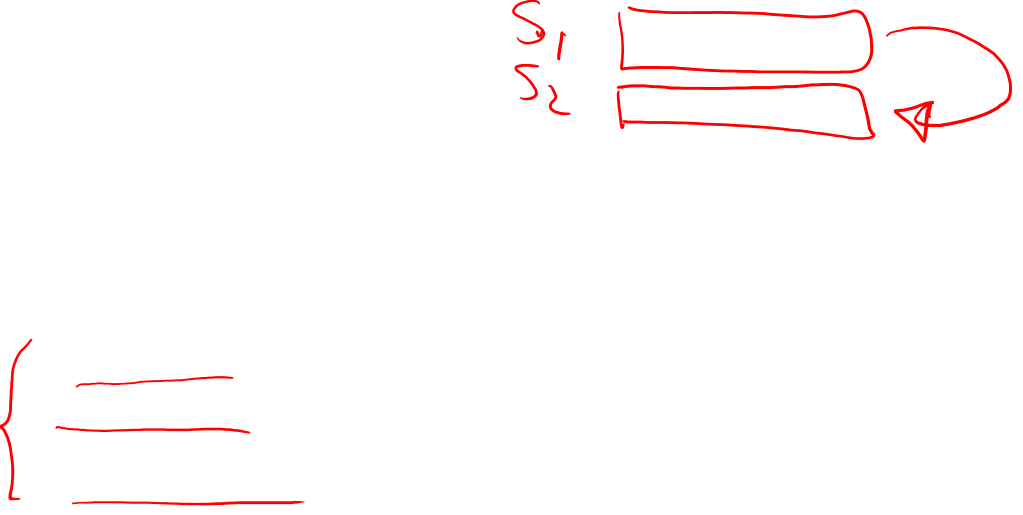 S₁
S₂